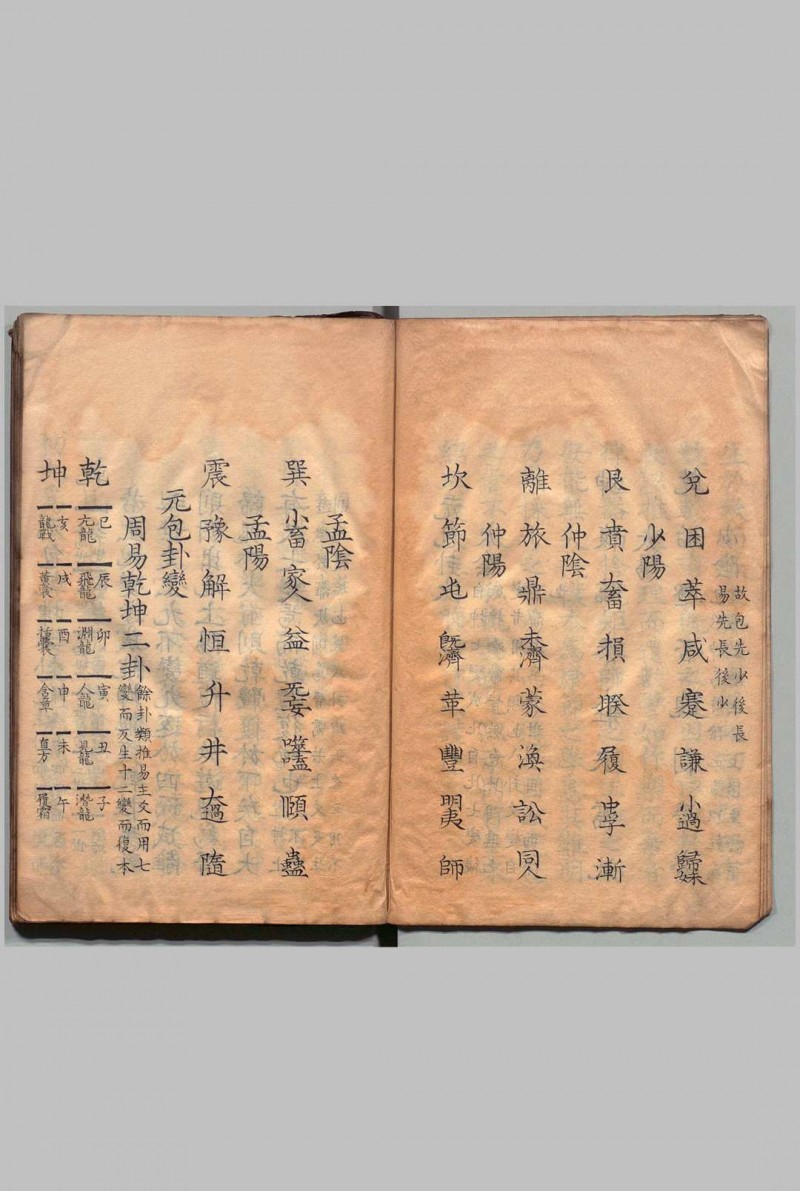 故包先少後長
易先長後少
兌困萃咸蹇謙小過歸妹
少陽
艮賁大畜損睽履中孚漸
仲陰
離旅鼎未濟蒙渙訟同人
仲陽
坎節屯既濟革豐明夷師
孟陰
巽小畜家人益无妄噬嗑頤蠱
孟陽
震豫解恒升井大過隨
元包卦變
周易乾坤二卦
餘卦類推易主爻而用七
變而反生十二變而復本
乾 巳亢龍 辰飛龍 卯淵龍 寅人龍 丑見龍 子潛龍
坤 亥龍戰 戌黃裳 酉括囊 申含章 未直方 午履霜